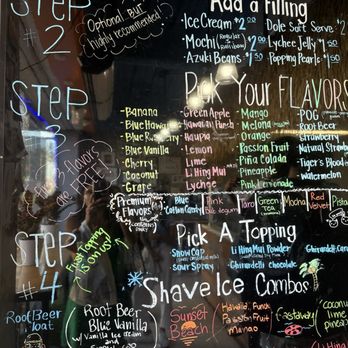 STEP #2
OPTIONAL BUT highly recommended!
Add a Filling
• Ice Cream $2.00
• Dole Soft Serve $2
• Mochi
• Lychee Jelly $1
• Azuki Beans $1.50
• Popping Pearls $1
STEP 3
Pick Your FLAVORS
flavors are FREE!
- Banana
- Blue Hawaii
- Blue
- Blue Vanilla
- Cherry
- Coconut
- Grape
- Green Apple
- Hawaiian Punch
- Haupia
- Lemon
- Lime
- Li Hing Mui
- Lychee
- Mango
- Melona
- Orange
- Passion Fruit
- Piña Colada
- Pineapple
- Pink Lemonade
- POG
- Root Beer
- Strawberry
- Natural Straw
- Tiger's Blood
- Watermelon
Premium Flavors
Blue Cotton Candy
Pink
Taro
Green Tea
Mocha
Red Velvet
STEP #4
First Topping is On us!
Pick A Topping
Snow Cap
Li Hing Mui Powder
Ghirardelli
Sour Spray
Ghirardelli Chocolate
Shave Ice Combos
Root Beer
Root Beer
Blue Vanilla
w/ Vanilla Ice
Sunset Beach
Hawaiian Punch
Passion Fruit
Mango
coconut
lime